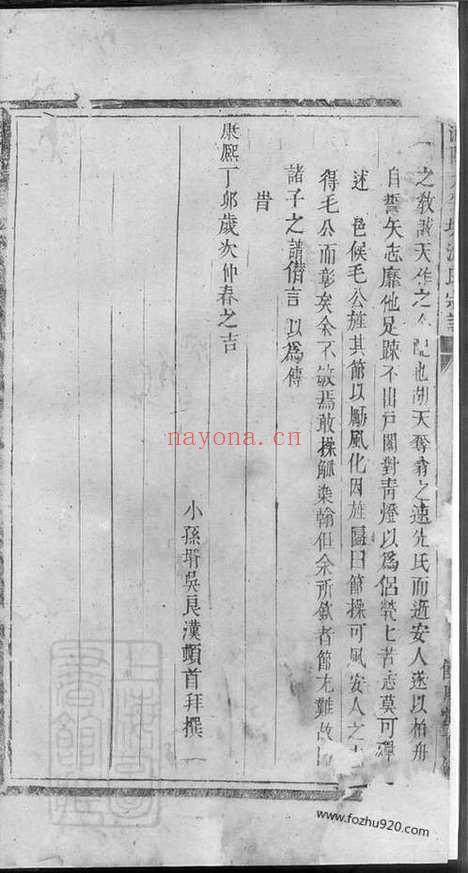 之教誠天作之 配也胡天奪 之速 氏而逝安人遂以柏舟
自誓矢志靡他足踈不出戶閾對青燈以為侶煢匕苦志莫可殫
述 邑候毛公旌其節以勵風化因旌匾曰節操可風安人之
得毛公而彰矣余不敏焉敢操觚染翰但余所欽者節尤難故
諸子之請僣言以為傳
旹
康熙丁卯歲次仲春之吉
小孫壻吳良漢頓首拜撰
nayona.cn
www.fozhu920.com